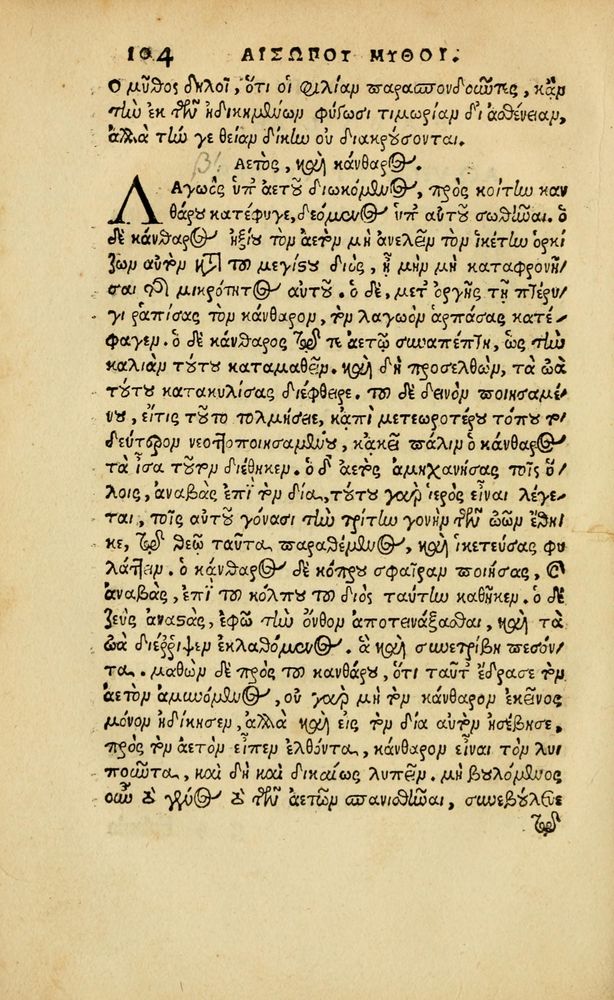 104 ΑΙΣΩΠΟΥ ΜΥΘΟΙ.
Ο μῦθος δηλοῖ, ὅτι οἱ φιλίαν παρασπονδοῦντες, κἂν
τὴν ἐκ τῶν ἠδικημένων φύγωσι τιμωρίαν δι' ἀσθένειαν,
ἀλλὰ τήν γε θείαν δίκην οὐ διακρούσονται.
β'. Αετὸς, καὶ κάνθαρος.
Λαγωὸς ὑπ' ἀετοῦ διωκόμενος, πρὸς κοίτην καν
θάρου κατέφυγε, δεόμενος ὑπ' αὐτοῦ σωθῆναι. ὁ
δὲ κάνθαρος ἠξίου τὸν ἀετὸν μὴ ἀνελεῖν τὸν ἱκέτην ὁρκί
ζων αὐτὸν κατὰ τοῦ μεγίστου διὸς, ἦ μὴν μὴ καταφρονῆ-
σαι τῆς μικρότητος αὐτοῦ. ὁ δὲ, μετ' ὀργῆς τῇ πτέρυ-
γι ῥαπίσας τὸν κάνθαρον, τὸν λαγωὸν ἁρπάσας κατέ-
φαγεν. ὁ δὲ κάνθαρος τῷ τε ἀετῷ συναπέπτη, ὡς τὴν
καλιὰν τούτου καταμαθεῖν. καὶ δὴ προσελθὼν, τὰ ὠὰ
τούτου κατακυλίσας διέφθειρε. τοῦ δὲ δεινὸν ποιησαμέ-
νου, εἴτις τοῦτο τολμήσειε, κἀπὶ μετεωροτέρου τόπου τὸ
δεύτερον νεοττοποιησαμένου, κἀκεῖ πάλιν ὁ κάνθαρος
τὰ ἴσα τοῦτον διέθηκεν. ὁ δ' ἀετὸς ἀμηχανήσας τοῖς ὅ-
λοις, ἀναβὰς ἐπὶ τὸν δία, τούτου γὰρ ἱερὸς εἶναι λέγε-
ται, τοῖς αὐτοῦ γόνασι τὴν τρίτην γονὴν τῶν ὠῶν ἔθη-
κε, τῷ θεῷ ταῦτα παραθέμενος, καὶ ἱκετεύσας φυ
λάττειν. ὁ κάνθαρος δὲ κόπρου σφαῖραν ποιήσας, καὶ
ἀναβὰς, ἐπὶ τοῦ κόλπου τοῦ διὸς ταύτην καθῆκεν. ὁ δὲ
ζεὺς ἀναστὰς, ἐφ' ᾧ τὴν ὄνθον ἀποτινάξασθαι, καὶ τὰ
ὠὰ διέρριψεν ἐκλαθόμενος. ἃ καὶ συνετρίβη πεσόν-
τα. μαθὼν δὲ πρὸς τοῦ κανθάρου, ὅτι ταῦτ' ἔδρασε τὸν
ἀετὸν ἀμυνόμενος, οὐ γὰρ μὴ τὸν κάνθαρον ἐκεῖνος
μόνον ἠδίκησεν, ἀλλὰ καὶ εἰς τὸν δία αὐτὸν ἠσέβησε,
πρὸς τὸν ἀετὸν εἶπεν ἐλθόντα, κάνθαρον εἶναι τὸν λυ
ποῦντα, καὶ δὴ καὶ δικαίως λυπεῖν. μὴ βουλόμενος
οὖν τὸ γένος τὸ τῶν ἀετῶν σπανισθῆναι, συνεβούλευε
τῷ